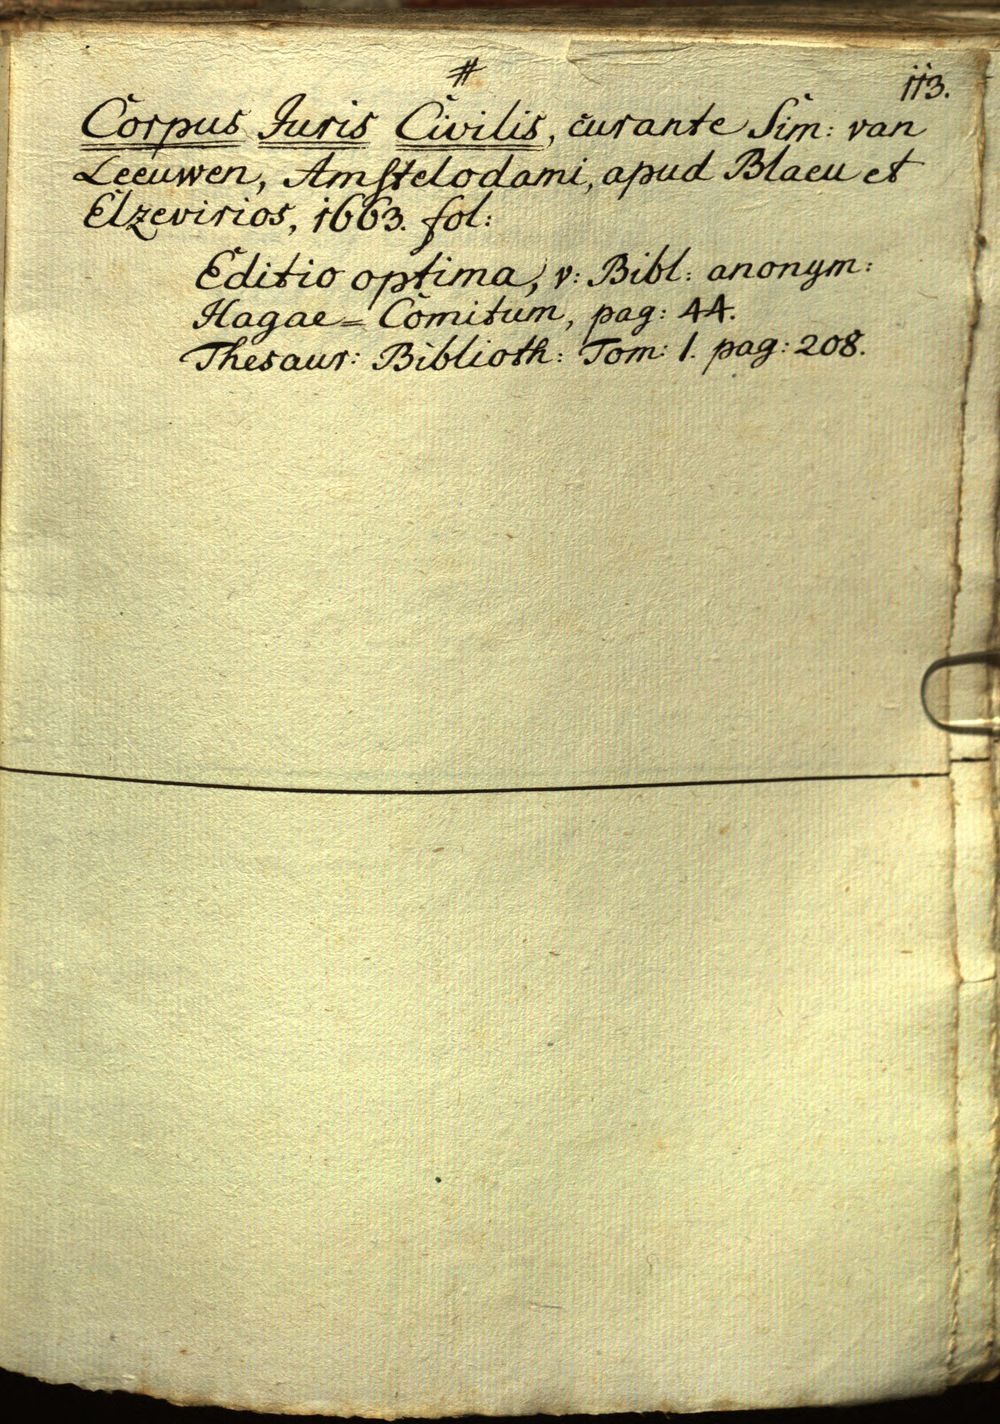 #
113.
Corpus Iuris Civilis, curante Sim: van
Leeuwen, Amstelodami, apud Blaeu et
Elzevirios, 1663. fol:
Editio optima, v: Bibl: anonym:
Hagae=Comitum, pag: 44.
Thesaur: Biblioth: Tom: 1. pag: 208.